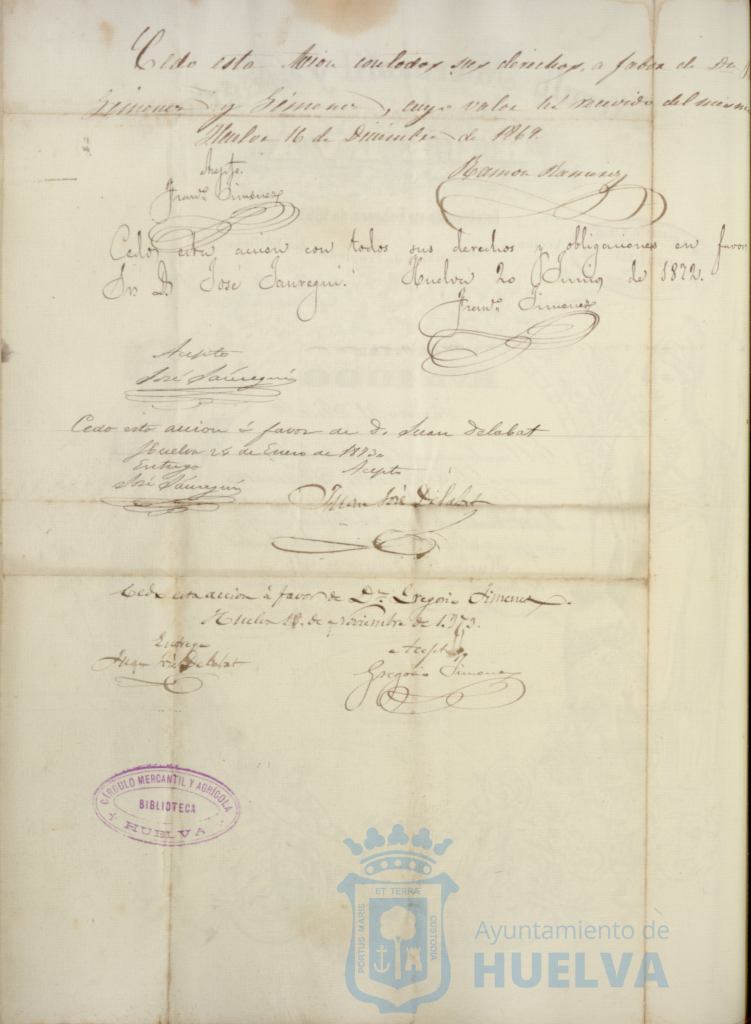 Cedo esta Acion con todos sus derechos, a favor de Dn
Gimenez y Gimenez, cuyo valor hé recivido del mismo
Huelva 16 de Diciembre de 1869.
Acepto.
Ramon Ramirez
Franco. Gimenez
Cedo esta accion con todos sus derechos y obligaciones en favor
Sr. D. José Jauregui. Huelva 20 Junio de 1872.
Franco. Jimenez
Acepto
José Jáuregui
Cedo esta accion á favor de D. Juan Delabat
Huelva de Enero de
Entrego
Acepto
José Jáuregui
Juan José Delabat
Cedo esta accion á favor de Dn. Gregorio Jimenez.
Huelva de Noviembre de 1.873.
Entrego
Acepto
Juan José Delabat
Gregorio Jimenez
CÍRCULO MERCANTIL Y AGRÍCOLA
BIBLIOTECA
HUELVA
PORTUS MARIS ET TERRÆ CUSTODIA
Ayuntamiento de
HUELVA